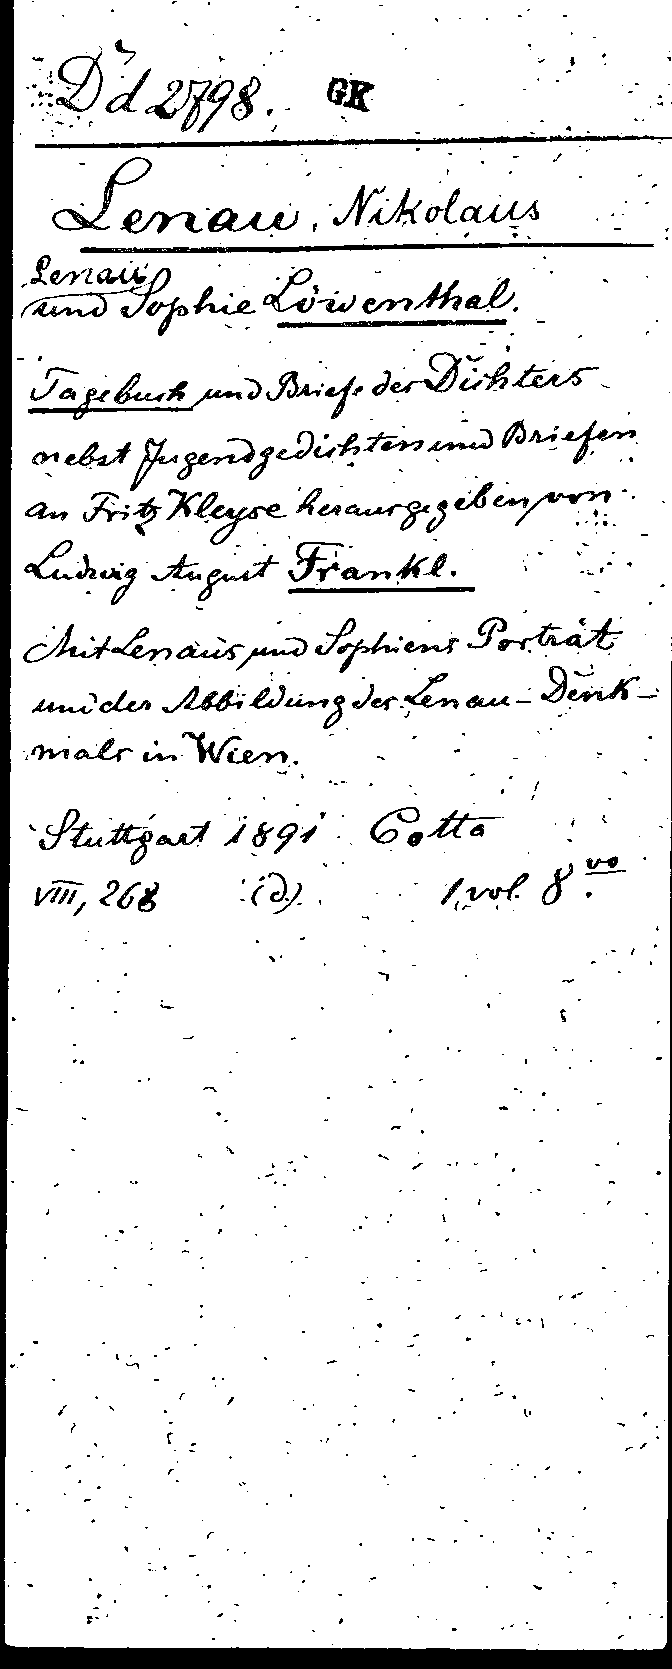 Dd 2798. GK
Lenau, Nikolaus
Lenau
und Sophie Löwenthal.
Tagebuch und Briefe des Dichters
nebst Jugendgedichten und Briefen
an Fritz Kleyse herausgegeben von
Ludwig August Frankl.
Mit Lenaus und Sophiens Porträt
und der Abbildung des Lenau-Denk-
mals in Wien.
Stuttgart 1891 Cotta
VIII, 268 (d). 1 vol. 8vo.